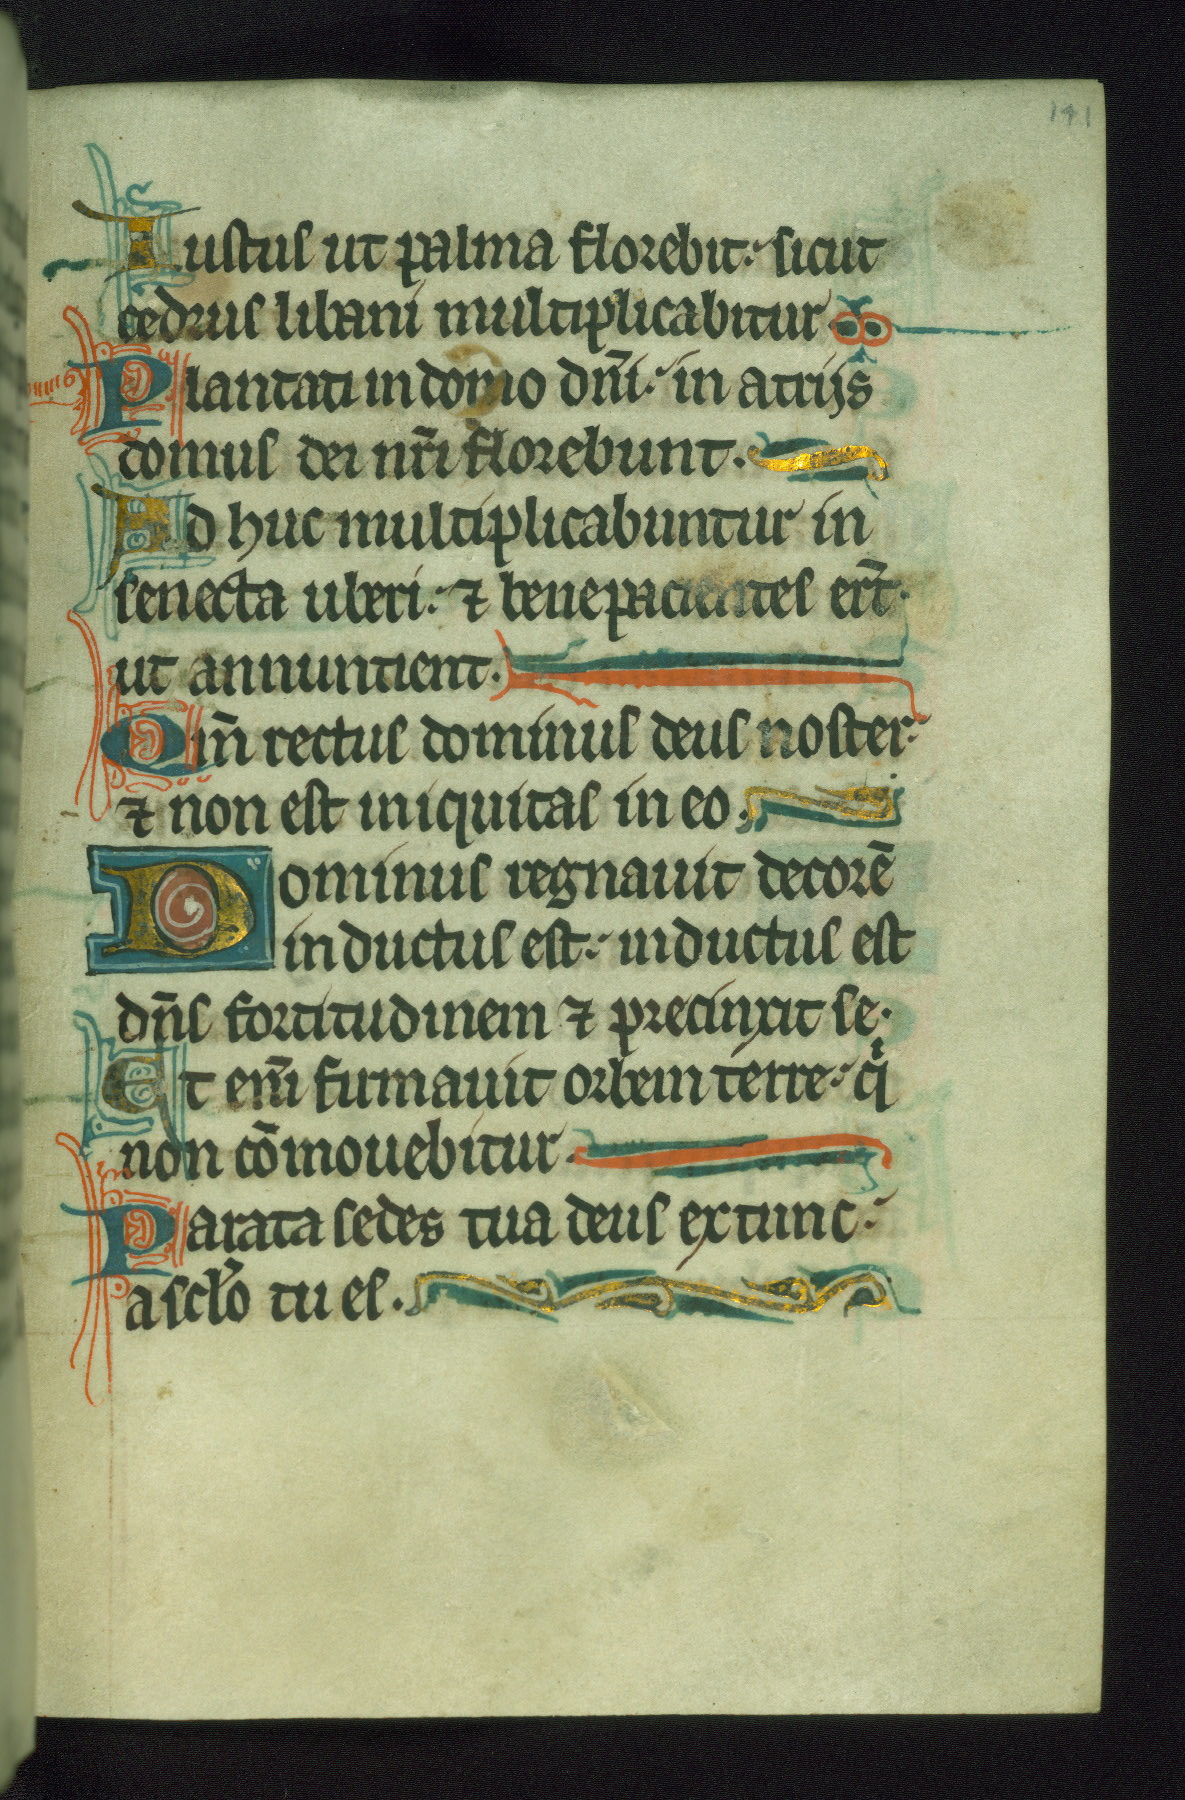 141
Iustus ut palma florebit: sicut
cedrus libani multiplicabitur
Plantati in domo dn̄i: in atrijs
domus dei nr̄i florebunt.
Ad huc multiplicabuntur in
senecta uberi: ⁊ benepacientes er̄t.
ut annuntient.
Qm̄ rectus dominus deus noster:
⁊ non est iniquitas in eo.
Dominus regnauit decorē
inductus est: inductus est
dn̄s fortitudinem ⁊ precinxit se.
Et eni̅ firmauit orbem terre: qͥ
non cōmouebitur.
Parata sedes tua deus ex tunc:
a sclo̅ tu es.